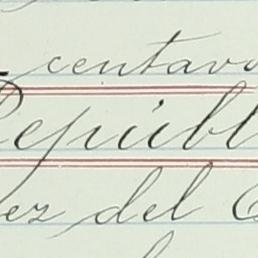 centavo
Repúbl
ez del